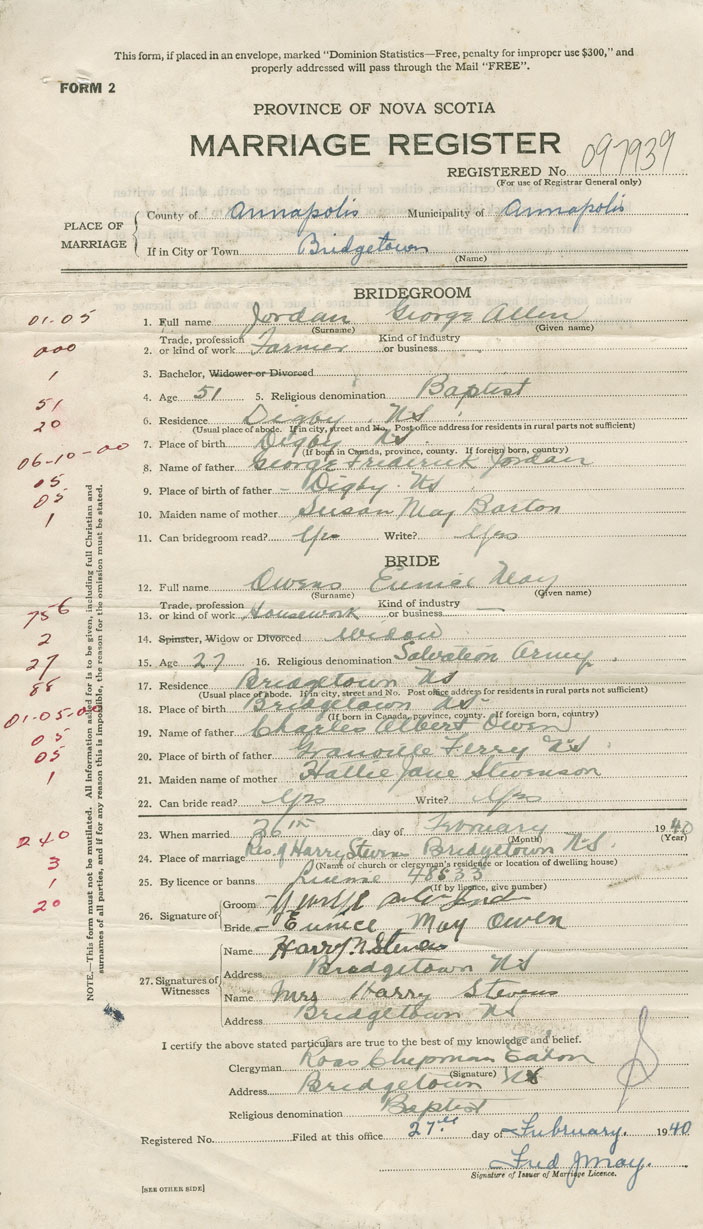 This form, if placed in an envelope, marked "Dominion Statistics—Free, penalty for improper use $300," and
properly addressed will pass through the Mail "FREE".
FORM 2
PROVINCE OF NOVA SCOTIA
MARRIAGE REGISTER
REGISTERED No. 097939
(For use of Registrar General only)
PLACE OF MARRIAGE
County of Annapolis Municipality of Annapolis
If in City or Town Bridgetown
(Name)
BRIDEGROOM
01-05
1. Full name Jordan George Allen
(Surname) (Given name)
000
2. Trade, profession or kind of work Farmer Kind of industry or business
1
3. Bachelor, Widower or Divorced
51
4. Age 51 5. Religious denomination Baptist
20
6. Residence Digby. NS
(Usual place of abode. If in city, street and No. Post office address for residents in rural parts not sufficient)
06-10-00
7. Place of birth Digby NS.
(If born in Canada, province, county. If foreign born, country)
8. Name of father George Frederick Jordan
05
9. Place of birth of father - Digby. NS
05
10. Maiden name of mother Susan May Barton
1
11. Can bridegroom read? Yes Write? Yes
BRIDE
12. Full name Owens Eunice May
(Surname) (Given name)
756
13. Trade, profession or kind of work Housework Kind of industry or business —
2
14. Spinster, Widow or Divorced widow
27
15. Age 27 16. Religious denomination Salvation Army.
88
17. Residence Bridgetown NS
(Usual place of abode. If in city, street and No. Post office address for residents in rural parts not sufficient)
01-05-00
18. Place of birth Bridgetown NS-
(If born in Canada, province, county. If foreign born, country)
19. Name of father Charles Albert Owen
05
20. Place of birth of father Granville Ferry NS
05
21. Maiden name of mother Hallie Jane Stevenson
1
22. Can bride read? Yes Write? Yes
23. When married 26th day of February 1940
(Month) (Year)
240
24. Place of marriage Res of Harry Stevens Bridgetown N-S.
(Name of church or clergyman's residence or location of dwelling house)
3
25. By licence or banns License 48533
(If by licence, give number)
1
20
26. Signature of
Groom George
Bride - Eunice May Owen
27. Signatures of Witnesses
Name Harry N Stevens
Address Bridgetown NS
Name Mrs Harry Stevens
Address Bridgetown NS
NOTE.—This form must not be mutilated. All information asked for is to be given, including full Christian and
surnames of all parties, and if for any reason this is impossible, the reason for the omission must be stated.
I certify the above stated particulars are true to the best of my knowledge and belief.
Clergyman Ross Chipman Eaton
(Signature)
Address Bridgetown NS
Religious denomination Baptist
Registered No. Filed at this office 27th day of February. 1940
Fred J May.
Signature of Issuer of Marriage Licence.
[SEE OTHER SIDE]